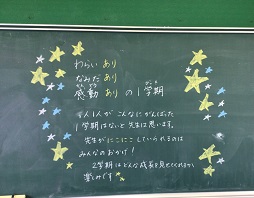 わらい あり
なみだ あり
感動 あり の 1学期
1人1人が こんなにがんばった
1学期はないと先生は思います。
先生がにこにこしていられるのは
みんなのおかげ!
2学期はどんな成長を見せてくれるか
楽しみです